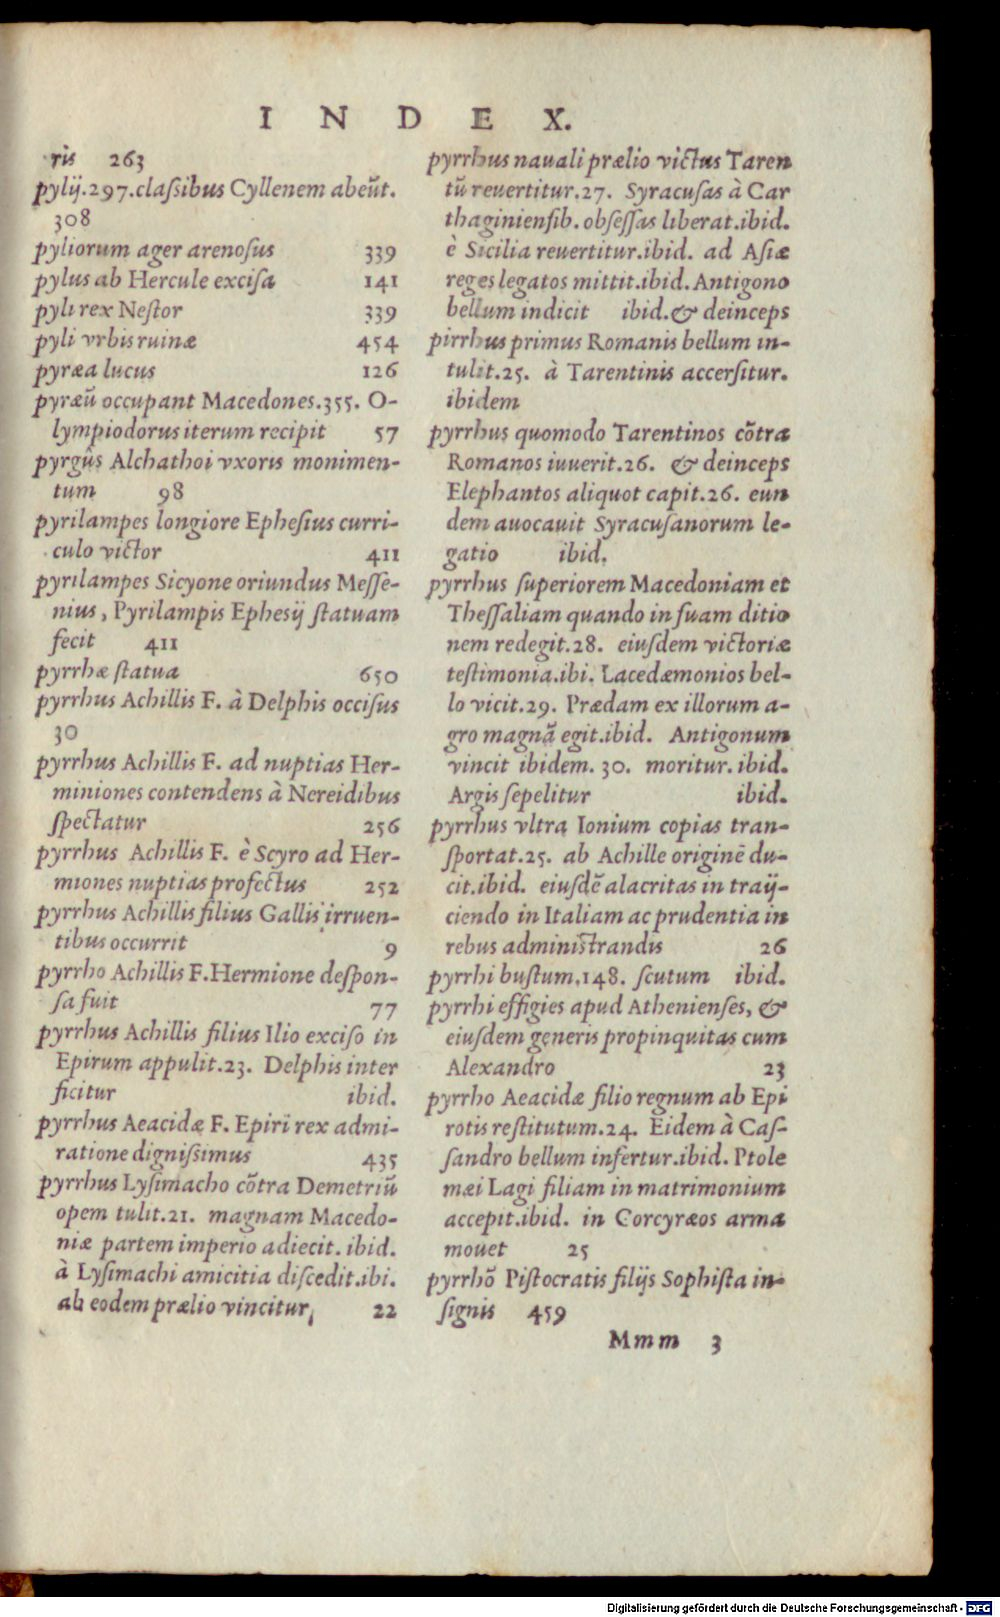 INDEX.
ris 263
pylij.297.classibus Cyllenem abeũt.
308
pyliorum ager arenosus 339
pylus ab Hercule excisa 141
pyli rex Nestor 339
pyli vrbis ruinæ 454
pyræa lucus 126
pyræũ occupant Macedones.355. O-
lympiodorus iterum recipit 57
pyrgûs Alchathoi vxoris monimen-
tum 98
pyrilampes longiore Ephesius curri-
culo victor 411
pyrilampes Sicyone oriundus Messe-
nius, Pyrilampis Ephesij statuam
fecit 411
pyrrhæ statua 650
pyrrhus Achillis F. à Delphis occisus
30
pyrrhus Achillis F. ad nuptias Her-
miniones contendens à Nereidibus
spectatur 256
pyrrhus Achillis F. è Scyro ad Her-
miones nuptias profectus 252
pyrrhus Achillis filius Gallis irruen-
tibus occurrit 9
pyrrho Achillis F.Hermione despon-
sa fuit 77
pyrrhus Achillis filius Ilio exciso in
Epirum appulit.23. Delphis inter
ficitur ibid.
pyrrhus Aeacidæ F. Epiri rex admi-
ratione dignissimus 435
pyrrhus Lysimacho cõtra Demetriũ
opem tulit.21. magnam Macedo-
niæ partem imperio adiecit. ibid.
à Lysimachi amicitia discedit.ibi.
ab eodem prælio vincitur, 22
pyrrhus nauali prælio victus Taren
tũ reuertitur.27. Syracusas à Car
thaginiensib. obsessas liberat.ibid.
è Sicilia reuertitur.ibid. ad Asiæ
reges legatos mittit.ibid. Antigono
bellum indicit ibid.& deinceps
pirrhus primus Romanis bellum in-
tulit.25. à Tarentinis accersitur.
ibidem
pyrrhus quomodo Tarentinos cõtra
Romanos iuuerit.26. & deinceps
Elephantos aliquot capit.26. eun
dem auocauit Syracusanorum le-
gatio ibid.
pyrrhus superiorem Macedoniam et
Thessaliam quando in suam ditio
nem redegit.28. eiusdem victoriæ
testimonia.ibi. Lacedæmonios bel-
lo vicit.29. Prædam ex illorum a-
gro magnã egit.ibid. Antigonum
vincit ibidem. 30. moritur. ibid.
Argis sepelitur ibid.
pyrrhus vltra Ionium copias tran-
sportat.25. ab Achille originẽ du-
cit.ibid. eiusdẽ alacritas in traij-
ciendo in Italiam ac prudentia in
rebus administrandis 26
pyrrhi bustum.148. scutum ibid.
pyrrhi effigies apud Athenienses, &
eiusdem generis propinquitas cum
Alexandro 23
pyrrho Aeacidæ filio regnum ab Epi
rotis restitutum.24. Eidem à Cas-
sandro bellum infertur.ibid. Ptole
mæi Lagi filiam in matrimonium
accepit.ibid. in Corcyræos arma
mouet 25
pyrrhõ Pistocratis filijs Sophista in-
signis 459
Mmm 3
Digitalisierung gefördert durch die Deutsche Forschungsgemeinschaft - DFG